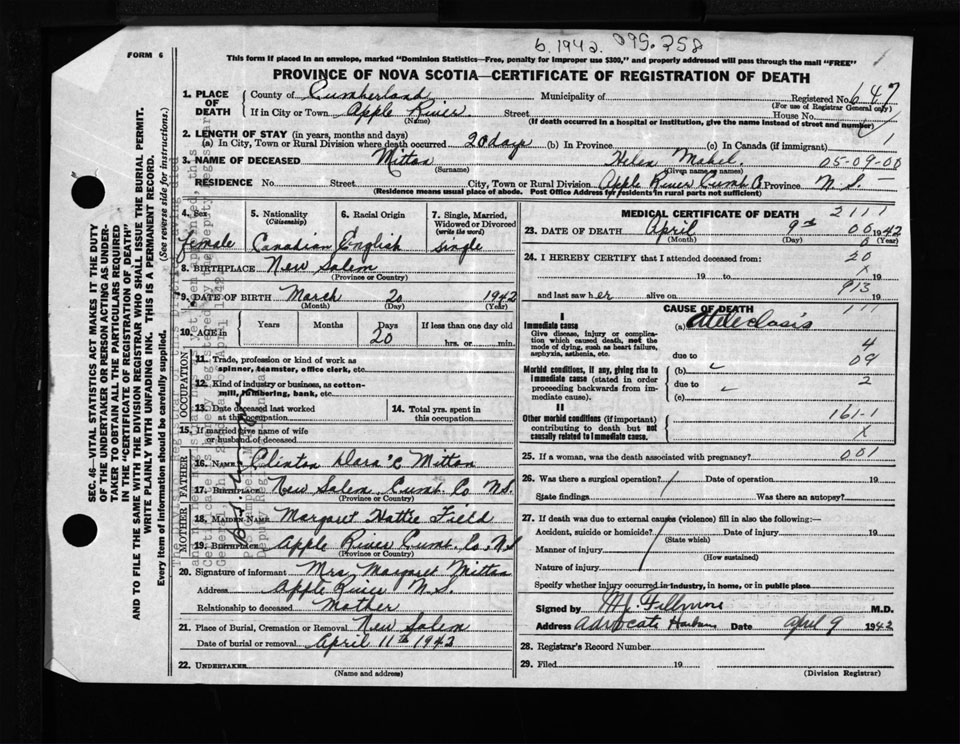 6.1942. 095.758
FORM 6
This form if placed in an envelope, marked "Dominion Statistics—Free, penalty for improper use $300," and properly addressed will pass through the mail "FREE"
PROVINCE OF NOVA SCOTIA—CERTIFICATE OF REGISTRATION OF DEATH
SEC. 46—VITAL STATISTICS ACT MAKES IT THE DUTY
OF THE UNDERTAKER OR PERSON ACTING AS UNDER-
TAKER TO OBTAIN ALL THE PARTICULARS REQUIRED
IN THE "CERTIFICATE OF REGISTRATION OF DEATH"
AND TO FILE THE SAME WITH THE DIVISION REGISTRAR WHO SHALL ISSUE THE BURIAL PERMIT.
WRITE PLAINLY WITH UNFADING INK. THIS IS A PERMANENT RECORD.
Every item of information should be carefully supplied. (See reverse side for instructions.)
1. PLACE OF DEATH County of Cumberland Municipality of Registered No. 647
(For use of Registrar General only)
If in City or Town Apple River Street House No.
(Name) (If death occurred in a hospital or institution, give the name instead of street and number)
2. LENGTH OF STAY (in years, months and days)
(a) In City, Town or Rural Division where death occurred 20 days (b) In Province (c) In Canada (if immigrant) 1
3. NAME OF DECEASED Mitton Helen Mabel. 05-09-00
(Surname) (Given name or names)
RESIDENCE No. Street City, Town or Rural Division Apple River Cumb Co Province N.S.
(Residence means usual place of abode. Post Office Address for residents in rural parts not sufficient)
4. Sex 5. Nationality 6. Racial Origin 7. Single, Married,
(Citizenship) Widowed or Divorced
(write the word)
female Canadian English single
8. BIRTHPLACE New Salem
(Province or Country)
9. DATE OF BIRTH March 20 1942
(Month) (Day) (Year)
10. AGE in Years Months Days If less than one day old
20 hrs. or min.
OCCUPATION
11. Trade, profession or kind of work as
spinner, teamster, office clerk, etc.
12. Kind of industry or business, as cotton-
mill, lumbering, bank, etc.
13. Date deceased last worked 14. Total yrs. spent in
at this occupation this occupation
15. If married give name of wife
or husband of deceased
FATHER
16. NAME Clinton Mitton
17. BIRTHPLACE New Salem, Cumb. Co N.S.
(Province or Country)
MOTHER
18. MAIDEN NAME Margaret Hattie Field
19. BIRTHPLACE Apple River Cumb. Co. N.S
(Province or Country)
20. Signature of informant Mrs Margaret Mitton
Address Apple River N.S.
Relationship to deceased Mother
21. Place of Burial, Cremation or Removal New Salem
Date of burial or removal April 11th 1942
22. UNDERTAKER
(Name and address)
MEDICAL CERTIFICATE OF DEATH 2111
23. DATE OF DEATH April 9th 00 1942
(Month) (Day) (Year)
24. I HEREBY CERTIFY that I attended deceased from: 20
19 to 19
X
and last saw her alive on 19
913
CAUSE OF DEATH 111
I
Immediate cause (a) Atelectasis
Give disease, injury or complica-
tion which caused death, not the
mode of dying, such as heart failure,
asphyxia, asthenia, etc.
4
due to 09
Morbid conditions, if any, giving rise to
immediate cause (stated in order
proceeding backwards from im-
mediate cause).
(b)
due to 2
(c)
II
Other morbid conditions (if important)
contributing to death but not
causally related to immediate cause.
161-1
X
25. If a woman, was the death associated with pregnancy? 001
26. Was there a surgical operation? Date of operation 19
State findings Was there an autopsy?
27. If death was due to external causes (violence) fill in also the following:—
Accident, suicide or homicide? Date of injury 19
(State which)
Manner of injury
(How sustained)
Nature of injury
Specify whether injury occurred in industry, in home, or in public place
Signed by Fillmore M.D.
Address Advocate Harbour Date April 9 1942
28. Registrar's Record Number
29. Filed 19
(Division Registrar)